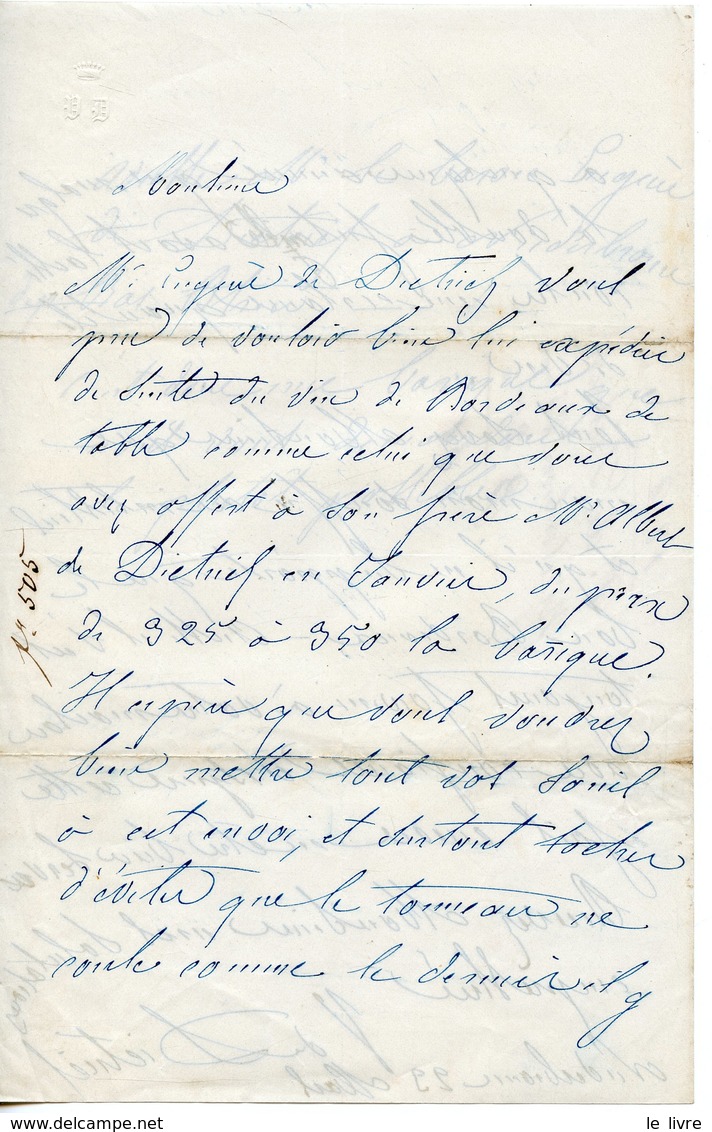 Monsieur
Mr. Eugène de Dietrich vous
prie de vouloir bien lui expédier
de suite du vin de Bordeaux de
table comme celui que vous
avez offert à son frère Mr. Albert
de Dietrich en Janvier, du prix
de 325 à 350 la barrique.
Il espère que vous voudrez
bien mettre tout vos soins
à cet envoi, et surtout tacher
d'éviter que le tonneau ne
coule comme le dernier il y
No. 505
le livre